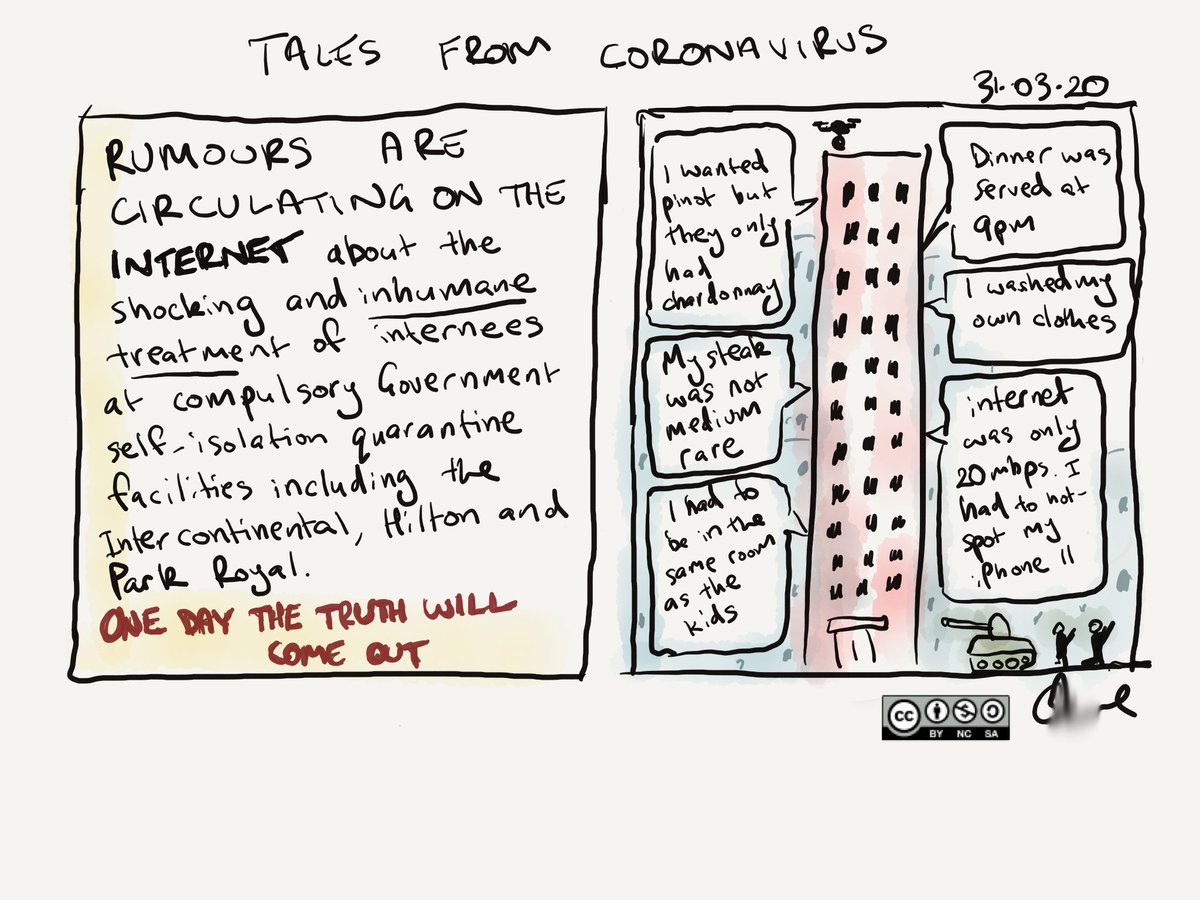 TALES FROM CORONAVIRUS
31.03.20
RUMOURS ARE
CIRCULATING ON THE
INTERNET about the
shocking and inhumane
treatment of internees
at compulsory Government
self-isolation quarantine
facilities including the
Intercontinental, Hilton and
Park Royal.
ONE DAY THE TRUTH WILL
COME OUT
I wanted
pinot but
they only
had
chardonnay
My steak
was not
medium
rare
I had to
be in the
same room
as the
kids
Dinner was
served at
9pm
I washed my
own clothes
internet
was only
20mbps. I
had to hot-
spot my
iPhone 11
cc
BY NC SA